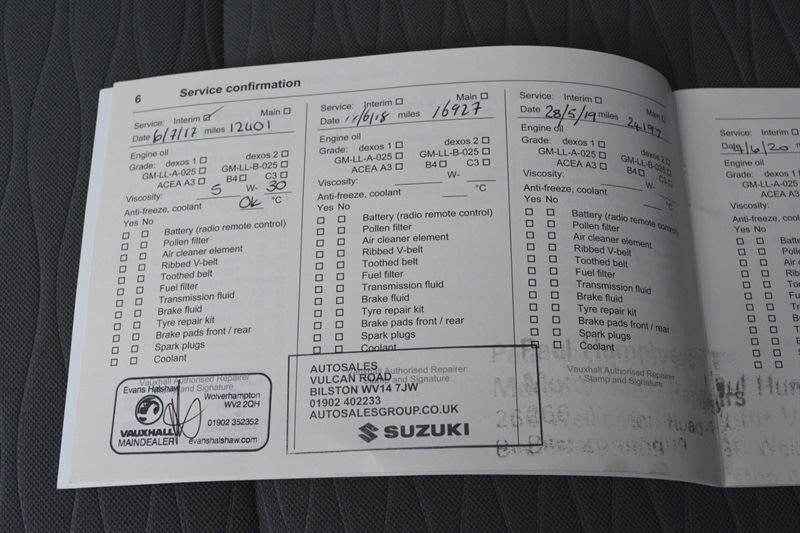 6
Service confirmation
Service: Interim ☑ Main ☐
Date 6/7/17 miles 12401
Engine oil
Grade: dexos 1 ☐ dexos 2 ☐
GM-LL-A-025 ☐ GM-LL-B-025 ☐
ACEA A3 ☐ B4 ☐ C3 ☐
Viscosity: 5 W- 30
Anti-freeze, coolant Ok °C
Yes No
☐ ☐ Battery (radio remote control)
☐ ☐ Pollen filter
☐ ☐ Air cleaner element
☐ ☐ Ribbed V-belt
☐ ☐ Toothed belt
☐ ☐ Fuel filter
☐ ☐ Transmission fluid
☐ ☐ Brake fluid
☐ ☐ Tyre repair kit
☐ ☐ Brake pads front / rear
☐ ☐ Spark plugs
☐ ☐ Coolant
Vauxhall Authorised Repairer
Stamp and Signature
Evans Halshaw
Wolverhampton
WV2 2QH
01902 352352
VAUXHALL
MAINDEALER
evanshalshaw.com
Service: Interim ☐ Main ☐
Date /6/18 miles 16927
Engine oil
Grade: dexos 1 ☐ dexos 2 ☐
GM-LL-A-025 ☐ GM-LL-B-025 ☐
ACEA A3 ☐ B4 ☐ C3 ☐
Viscosity: W-
Anti-freeze, coolant °C
Yes No
☐ ☐ Battery (radio remote control)
☐ ☐ Pollen filter
☐ ☐ Air cleaner element
☐ ☐ Ribbed V-belt
☐ ☐ Toothed belt
☐ ☐ Fuel filter
☐ ☐ Transmission fluid
☐ ☐ Brake fluid
☐ ☐ Tyre repair kit
☐ ☐ Brake pads front / rear
☐ ☐ Spark plugs
☐ ☐ Coolant
Vauxhall Authorised Repairer
Stamp and Signature
AUTOSALES
VULCAN ROAD
BILSTON WV14 7JW
01902 402233
AUTOSALESGROUP.CO.UK
SUZUKI
Service: Interim ☐ Main ☐
Date 28/5/19 miles 24197
Engine oil
Grade: dexos 1 ☐ dexos 2 ☐
GM-LL-A-025 ☐ GM-LL-B-025 ☐
ACEA A3 ☐ B4 ☐ C3 ☐
Viscosity: W-
Anti-freeze, coolant °C
Yes No
☐ ☐ Battery (radio remote control)
☐ ☐ Pollen filter
☐ ☐ Air cleaner element
☐ ☐ Ribbed V-belt
☐ ☐ Toothed belt
☐ ☐ Fuel filter
☐ ☐ Transmission fluid
☐ ☐ Brake fluid
☐ ☐ Tyre repair kit
☐ ☐ Brake pads front / rear
☐ ☐ Spark plugs
☐ ☐ Coolant
Vauxhall Authorised Repairer
Stamp and Signature
Paul
Service: Interim ☐
Date /6/20 miles
Engine oil
Grade: dexos 1
GM-LL-A-025 ☐
ACEA A3 ☐
Viscosity:
Anti-freeze, coolant
Yes No